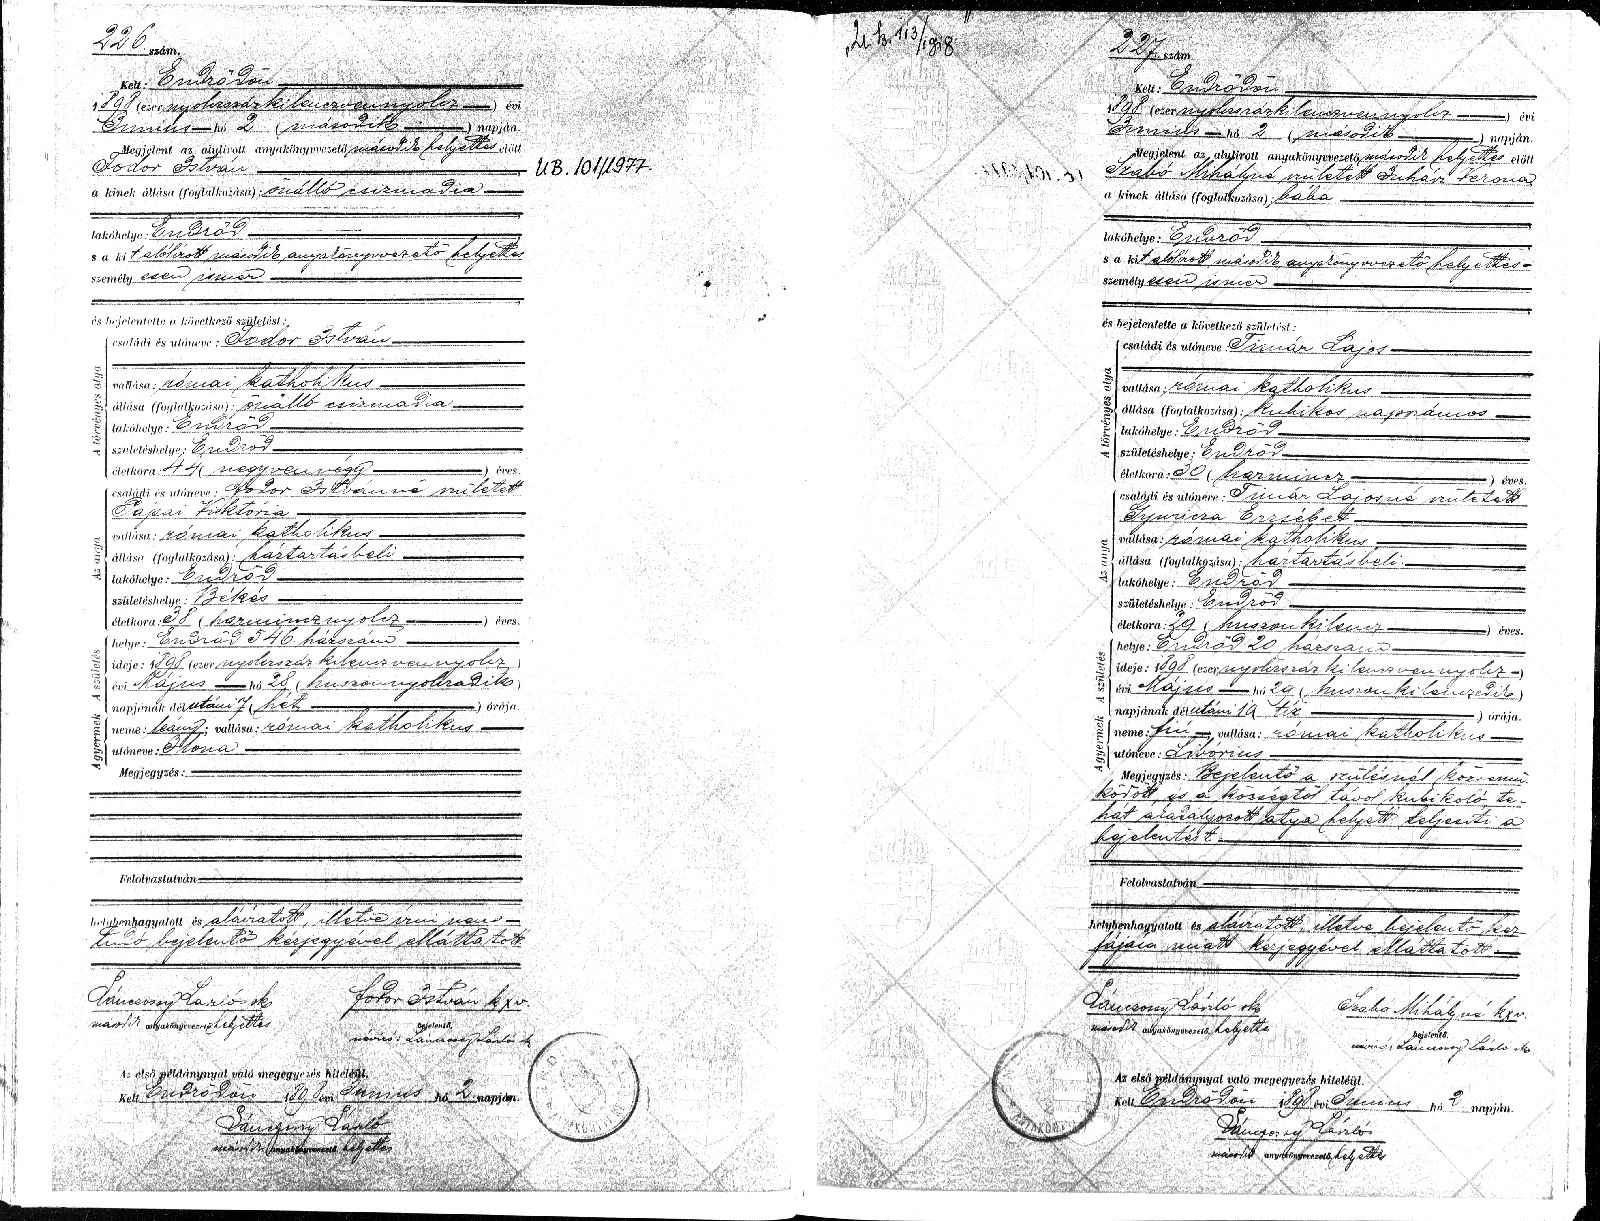 226 szám.
Kelt: Endrődön
1898 (ezer nyolczszázkilenczvennyolcz) évi
Junius hó 2 (második) napján.
Megjelent az alulirott anyakönyvvezető második helyettes előtt
Fodor István
a kinek állása (foglalkozása): önálló csizmadia
lakóhelye: Endrőd
s a kit alólirott második anyakönyvvezető helyettes
személyesen ismer
és bejelentette a következő születést:
A törvényes atya
családi és utóneve: Fodor István
vallása: római katholikus
állása (foglalkozása): önálló csizmadia
lakóhelye: Endrőd
születéshelye: Endrőd
életkora: 44 (negyvennégy) éves.
Az anya
családi és utóneve: Fodor Istvánné született
Pápai Viktoria
vallása: római katholikus
állása (foglalkozása): háztartásbeli
lakóhelye: Endrőd
születéshelye: Békés
életkora: 38 (harmincznyolcz) éves.
A születés
helye: Endrőd 546 házszám
ideje: 1898 (ezer nyolczszázkilenczvennyolcz)
évi Május hó 28 (huszonnyolczadik)
napjának délutáni 7 (hét) órája.
A gyermek
neme: leány; vallása: római katholikus
utóneve: Ilona
Megjegyzés:
Felolvastatván
helybenhagyatott és aláiratott, illetve irni nem
tudó bejelentő kézjegyével elláttatott
Lánczosy László sk Fodor István kxv.
második anyakönyvvezető helyettes bejelentő.
névíró: Lánczosy László sk
Az első példánynyal való megegyezés hiteléül.
Kelt Endrődön 1898 évi Junius hó 2 napján.
Lánczosy László
második anyakönyvvezető helyettes
U.B. 101/1977.
U.B. 113/1918
227 szám
Kelt: Endrődön
1898 (ezer nyolczszázkilenczvennyolcz) évi
Junius hó 2 (második) napján.
Megjelent az alulirott anyakönyvvezető második helyettes előtt
Szabó Mihályné született Juhász Verona
a kinek állása (foglalkozása): bába
lakóhelye: Endrőd
s a kit alólirott második anyakönyvvezető helyettes
személyesen ismer
és bejelentette a következő születést:
A törvényes atya
családi és utóneve: Timár Lajos
vallása: római katholikus
állása (foglalkozása): kubikos napszámos
lakóhelye: Endrőd
születéshelye: Endrőd
életkora: 30 (harmincz) éves.
Az anya
családi és utóneve: Timár Lajosné született
Gyuricza Erzsébet
vallása: római katholikus
állása (foglalkozása): háztartásbeli
lakóhelye: Endrőd
születéshelye: Endrőd
életkora: 29 (huszonkilencz) éves.
A születés
helye: Endrőd 20 házszám
ideje: 1898 (ezer nyolczszázkilenczvennyolcz)
évi Május hó 29 (huszonkilenczedik)
napjának délutáni 10 tiz) órája.
A gyermek
neme: fiú, vallása: római katholikus
utóneve: Libórius
Megjegyzés: Bejelentő a szülésnél közremü-
ködött, és a községtől távol kubikoló te-
hát akadályozott atya helyett teljesiti a
bejelentést.
Felolvastatván
helybenhagyatott és aláiratott, illetve bejelentő kéz-
fájása miatt kézjegyével elláttatott.
Lánczosy László sk Szabó Mihályné kxv.
második anyakönyvvezető helyettes bejelentő.
névíró: Lánczosy László sk
Az első példánynyal való megegyezés hiteléül.
Kelt Endrődön 1898 évi Junius hó 2 napján.
Lánczosy László
második anyakönyvvezető helyettes